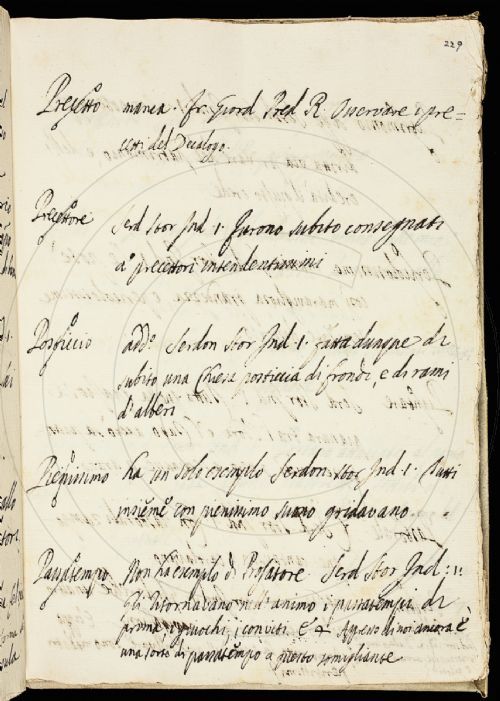 229
Precetto manca. fr. Giord. Pred. R. Osservare i pre=
cetti del Decalogo.
Precettore Serd Stor Ind 1. furono subito consegnati
a precettori intendentissimi
Posticcio add.o Serdon Stor Ind. 1. fatta dunque di
subito una Chiesa posticcia di frondi, e di rami
d'alberi
Pienissimo ha un solo esempio Serdon. Stor Ind. 1. Tutti
insieme con pienissimo suono gridavano
Passatempo Non ha esempio di Prosatore. Serd Stor Ind: 1.
Gli ritornavano nell'animo i passatempi di
prima, i giuochi, i conviti & Appresso di noi ancora è
una sorte di passatempo a questo somigliante